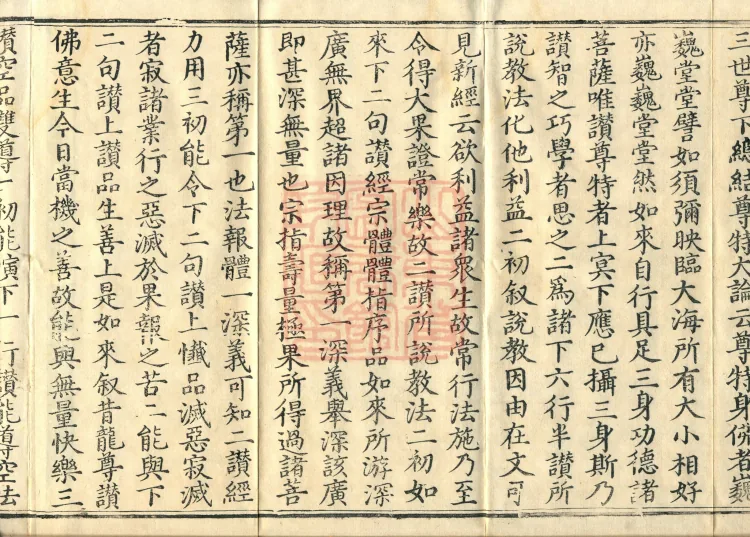 三世尊下總結尊特大論云尊特身佛者巍
巍堂堂譬如須彌映臨大海所有大小相好
亦巍巍堂堂然如來自行具足三身功德諸
菩薩唯讚尊特者上冥下應已攝三身斯乃
讚智之巧學者思之二為諸下六行半讚所
說教法化他利益二初叙說教因由在文可
見新經云欲利益諸眾生故常行法施乃至
令得大果證常樂故二讚所說教法二初如
來下二句讚經宗體體指序品如來所游深
廣無界超諸因理故稱第一深義舉深該廣
即甚深無量也宗指壽量極果所得過諸菩
薩亦稱第一也法報體一深義可知二讚經
力用三初能令下二句讚上懺品滅惡寂滅
者寂諸業行之惡滅於果報之苦二能與下
二句讚上讚品生善上是如來叙昔龍尊讚
佛意生今日當機之善故能與無量快樂三
讚空品雙導一初能演下一行讚能導空法